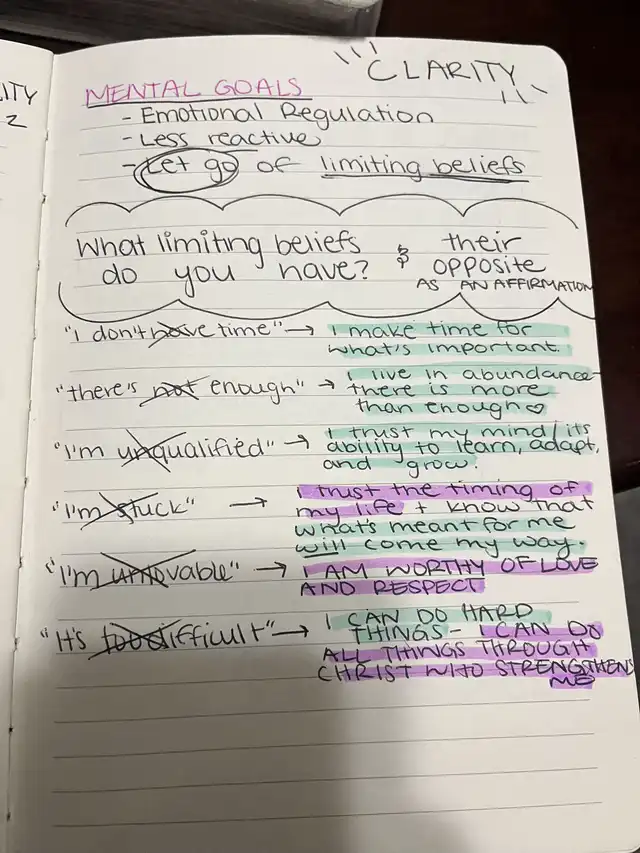 ITY
2
CLARITY
MENTAL GOALS
- Emotional Regulation
- Less reactive
- Let go of limiting beliefs
What limiting beliefs
do you have?
& their
OPPOSITE
AS AN AFFIRMATION
"I don't have time" → I make time for
what's important.
"there's not enough" → I live in abundance-
there is more
than enough ♡
"I'm unqualified" → I trust my mind/its
ability to learn, adapt,
and grow!
"I'm stuck" → I trust the timing of
my life + know that
what's meant for me
will come my way.
"I'm unlovable" → I AM WORTHY OF LOVE
AND RESPECT
"It's too difficult" → I CAN DO HARD
THINGS - I CAN DO
ALL THINGS THROUGH
CHRIST WHO STRENGTHENS
ME